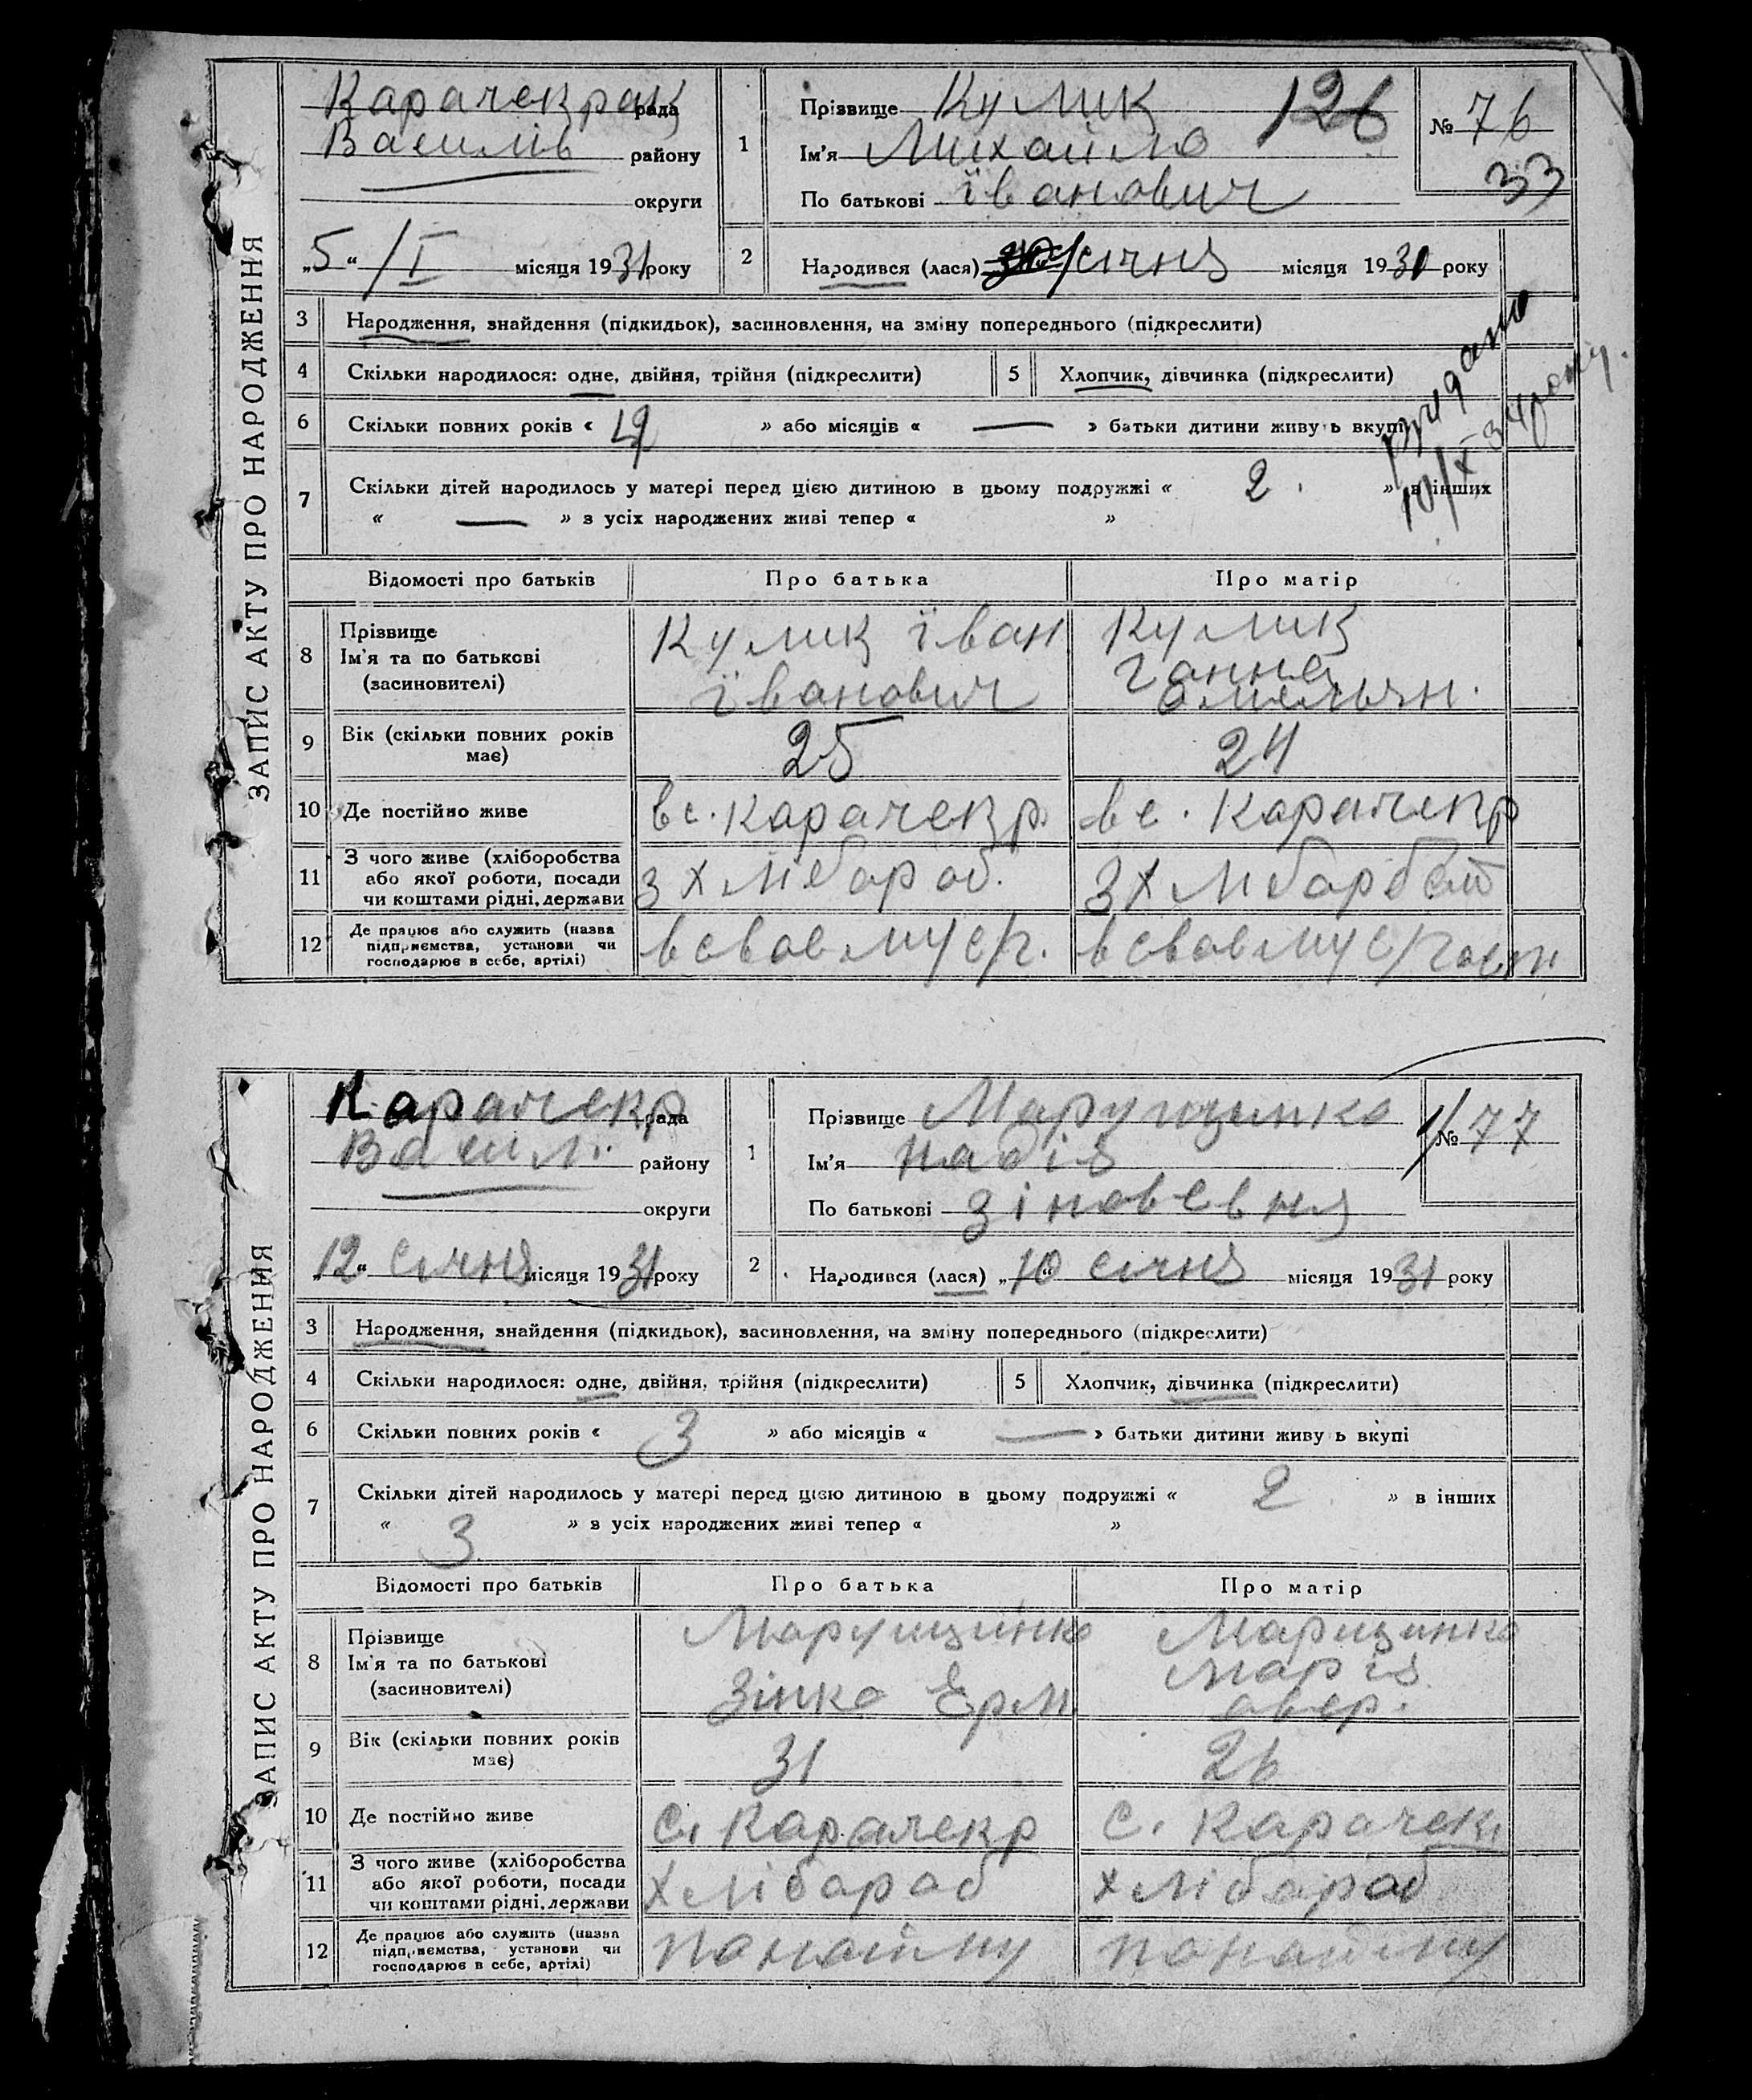 ЗАПИС АКТУ ПРО НАРОДЖЕННЯ
Карачекрак рада
Василів району
округи
„5“ /I місяця 1931 року
1
Прізвище Кулик 126
Ім'я Михайло
По батькові Їванович
№ 76
33
2
Народився (лася) січня місяця 1930 року
3 Народження, знайдення (підкидьок), засиновлення, на зміну попереднього (підкреслити)
4 Скільки народилося: одне, двійня, трійня (підкреслити)
5 Хлопчик, дівчинка (підкреслити)
6 Скільки повних років « » або місяців « — » батьки дитини живуть вкупі
7 Скільки дітей народилось у матері перед цією дитиною в цьому подружжі « 2. » в інших
« — » з усіх народжених живі тепер « »
Відомості про батьків Про батька Про матір
8 Прізвище
Ім'я та по батькові
(засиновителі)
Кулик Їван
Їванович
Кулик
Ганна
Омельян.
9 Вік (скільки повних років
має)
25 24
10 Де постійно живе в с. Карачекр. в с. Карачекр
11 З чого живе (хліборобства
або якої роботи, посади
чи коштами рідні, держави
з хлібороб. з хлібороб
12 Де працює або служить (назва
підприємства, установи чи
господарює в себе, артілі)
в своему с/г. в своему с/госп
ЗАПИС АКТУ ПРО НАРОДЖЕННЯ
Карачекр рада
Васил. району
округи
„12“ січня місяця 1931 року
1
Прізвище Марущинко
Ім'я Надія
По батькові Зіновєвня
№ 77
2
Народився (лася) „10“ січня місяця 1931 року
3 Народження, знайдення (підкидьок), засиновлення, на зміну попереднього (підкреслити)
4 Скільки народилося: одне, двійня, трійня (підкреслити)
5 Хлопчик, дівчинка (підкреслити)
6 Скільки повних років « 3 » або місяців « — » батьки дитини живуть вкупі
7 Скільки дітей народилось у матері перед цією дитиною в цьому подружжі « 2 » в інших
« 3 » з усіх народжених живі тепер « »
Відомості про батьків Про батька Про матір
8 Прізвище
Ім'я та по батькові
(засиновителі)
Марущинко
Зінко Єрм.
Марищинко
Марія
авер.
9 Вік (скільки повних років
має)
31 26
10 Де постійно живе с. Карачекр с. Карачек
11 З чого живе (хліборобства
або якої роботи, посади
чи коштами рідні, держави
хлібароб хлібароб
12 Де працює або служить (назва
підприємства, установи чи
господарює в себе, артілі)
понайму понайму